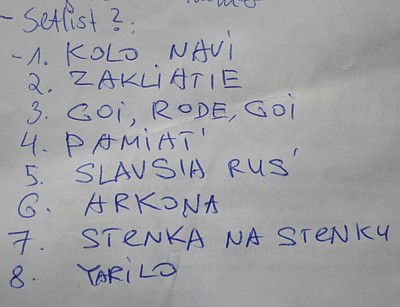 - Setlist ?:
- 1. KOLO NAVI
2. ZAKLIATIE
3. GOI, RODE, GOI
4. PAMIAT'
5. SLAVSIA RUS'
6. ARKONA
7. STENKA NA STENKU
8. YARILO